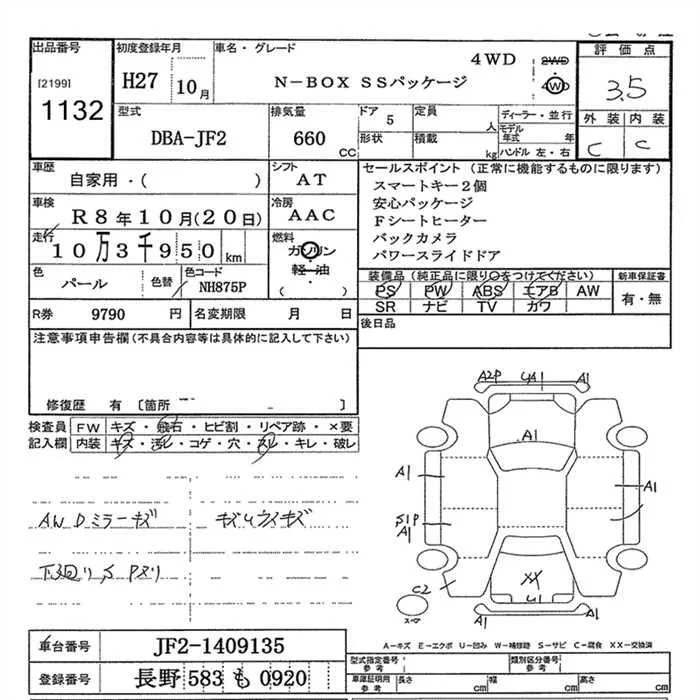 出品番号 初度登録年月 車名・グレード 評価点
[2199] H27 10月 N-BOX SSパッケージ 4WD 2WD 4WD 3.5
1132 外装 内装
型式 排気量 ドア 5 定員 人 ディーラー・並行
DBA-JF2 660 CC 形状 積載 kg モデル年式 年 C C
ハンドル 左・右
車歴 シフト セールスポイント (正常に機能するものに限ります)
自家用・( ) AT スマートキー2個
車検 冷房 安心パッケージ
R8年10月(20日) AAC Fシートヒーター
走行 燃料 バックカメラ
10万3千950km ガソリン パワースライドドア
軽油
( )
色 色替 色コード 装備品 (純正品に限り○をつけてください) 新車保証書
パール NH875P PS PW ABS エアB AW 有・無
SR ナビ TV カワ
R券 9790 円 名変期限 月 日 後日品
注意事項申告欄 (不具合内容等は具体的に記入して下さい)
修復歴 有 〔箇所 〕
検査員 FW キズ・飛石・ヒビ割・リペア跡・×要
記入欄 内装 キズ・汚レ・コゲ・穴・スレ・キレ・破レ
A2P UA1 A1
A1
A1 A1
S1P
A1
C2 XX
U1
A1 A1
スマ
AW Dミラーキズ
下廻りS Pヌリ
A-キズ E-エクボ U-凹み W-補修跡 S-サビ C-腐食 XX-交換済
車台番号 JF2-1409135 型式指定番号 参考 類別区分番号 参考
登録番号 長野 583 も 0920 車庫証明用 参考 長さ cm 幅 cm 高さ cm